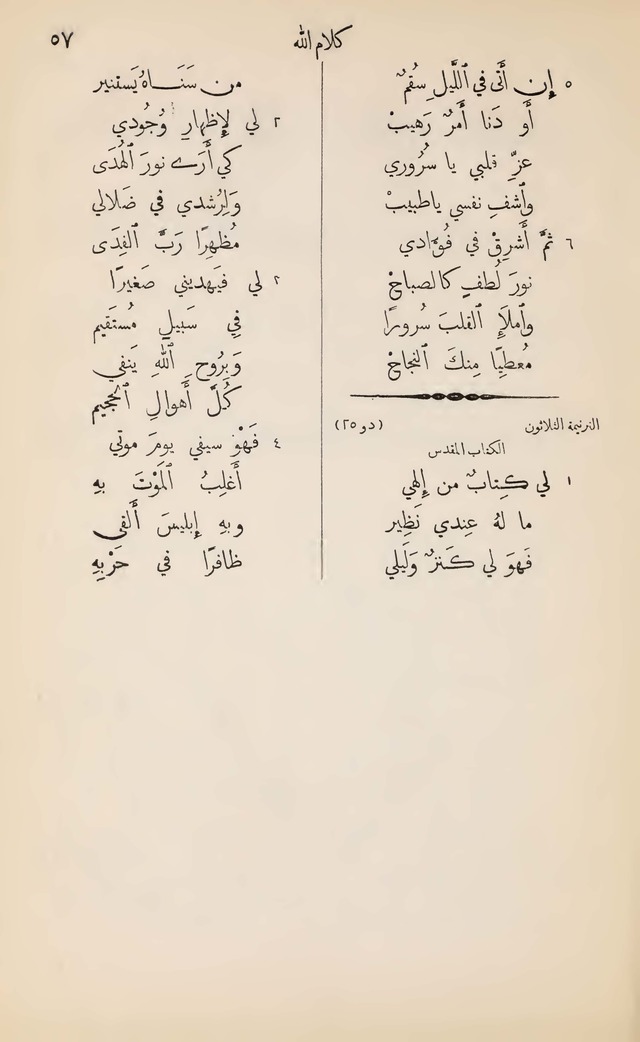 كلام الله
٥٧
٥ إِن أَتَى في ٱللَّيلِ سُقمٌ
أَو دَنا أَمرٌ رَهيبْ
عزِّ قلبي يا سُرُوري
وٱشفِ نفسي ياطبيبْ
٦ ثمَّ أَشرِقْ في فُؤَادي
نورَ لُطفٍ كالصباحْ
وٱملإِ ٱلقلبَ سُرورًا
مُعطِيًا مِنكَ ٱلنجاحْ
الترنيمة الثلاثون (دو ٢٥)
الكتاب المقدس
١ لي كِتابٌ من إِلٰهي
ما لهُ عِندي نَظِير
فَهوَ لي كَنزٌ وَلَيلي
من سَنَاهُ يَستنير
٢ لي لإِظهارِ وُجُودي
كي أَرَے نورَ ٱلهُدَى
وَلِرُشدي في ضَلالي
مُظهِرًا رَبَّ ٱلفِدَى
٣ لي فيَهديني صَغيرًا
فِي سَبيلٍ مُستَقيم
وَبِرُوحِ ٱللهِ يَنفي
كُلَّ أَهوالِ ٱلجحيم
٤ فَهْوَ سيفي يومَ موتي
أَغلِبُ ٱلمَوْتَ بهِ
وبهِ إِبليسَ أَلقى
ظافرًا في حَرْبِهِ